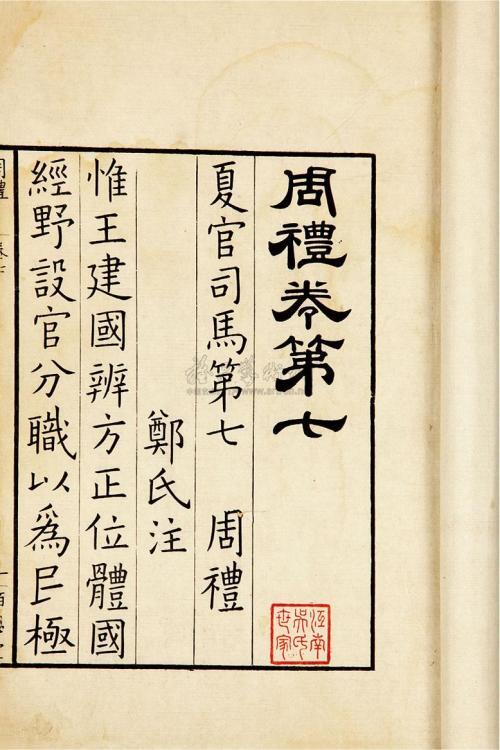 周禮卷第七
夏官司馬第七 周禮
鄭氏注
惟王建國辨方正位體國
經野設官分職以爲民極
周禮 卷七
江南
吳氏
世家